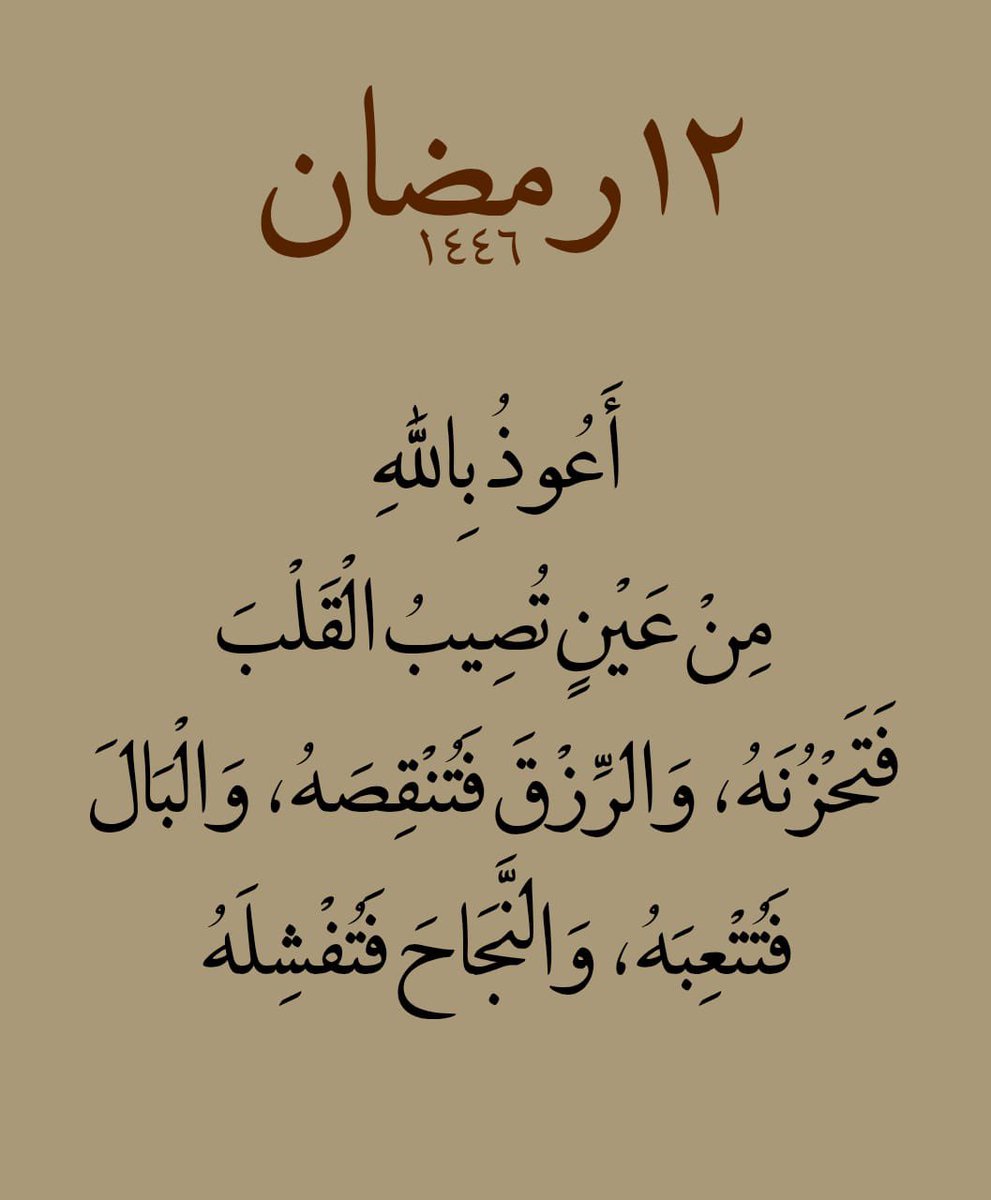 ١٢ رمضان
١٤٤٦
أَعُوذُ بِاللَّهِ
مِنْ عَيْنٍ تُصِيبُ الْقَلْبَ
فَتَحْزُنَهُ، وَالرِّزْقَ فَتُنْقِصَهُ، وَالْبَالَ
فَتُتْعِبَهُ، وَالنَّجَاحَ فَتُفْشِلَهُ